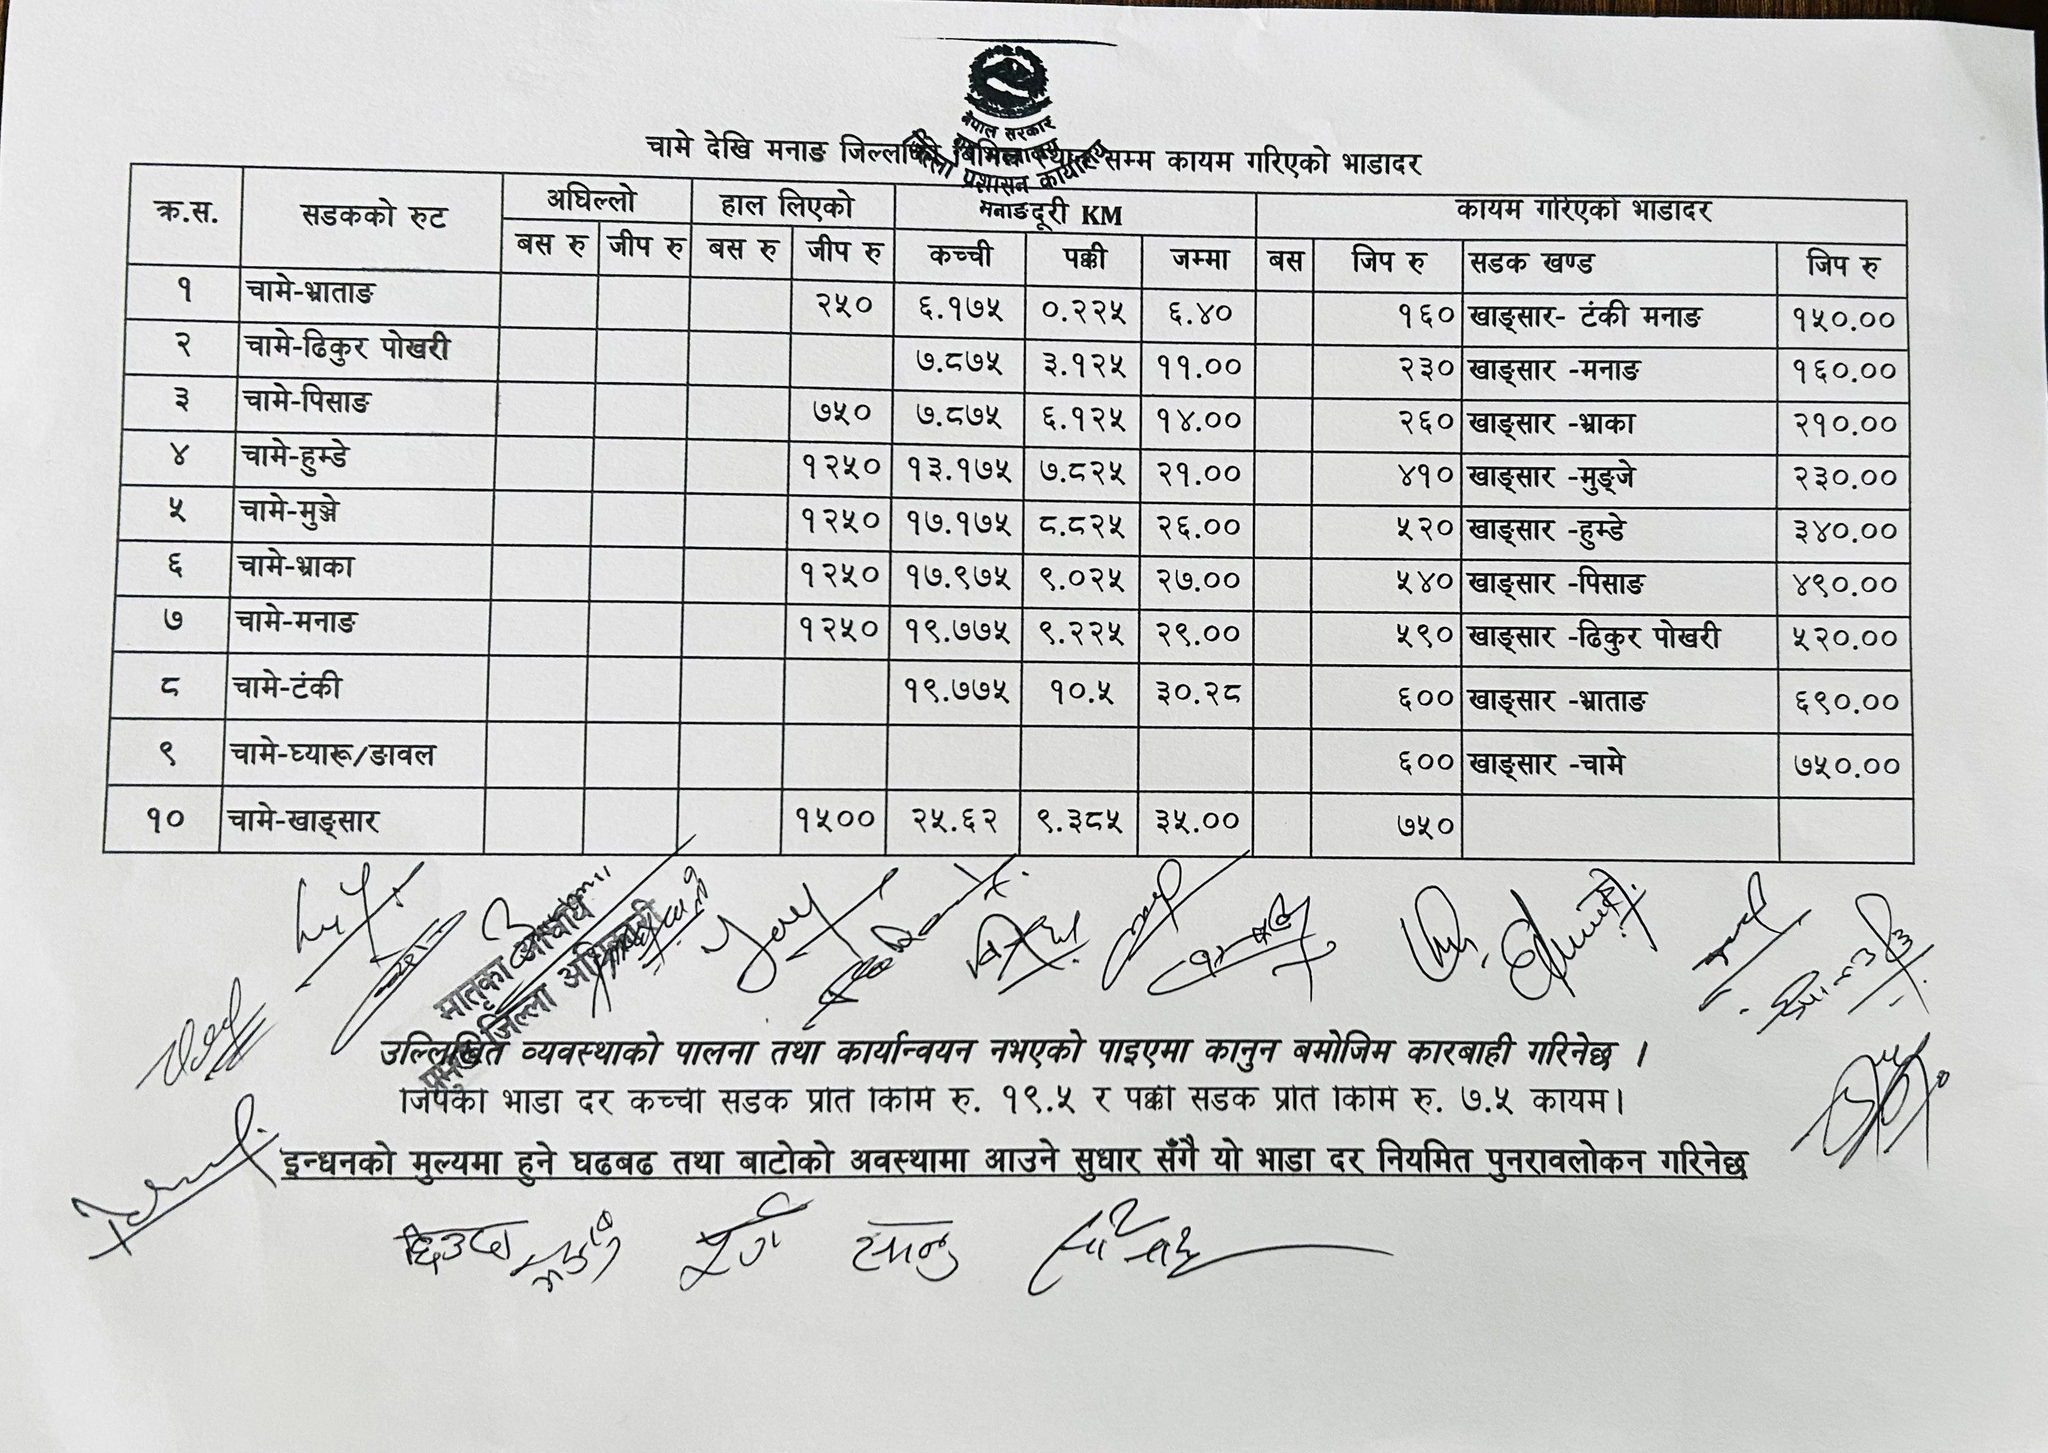 नेपाल सरकार
गृह मन्त्रालय
जिल्ला प्रशासन कार्यालय
मनाङ
चामे देखि मनाङ जिल्लाको विभिन्न स्थान सम्म कायम गरिएको भाडादर
क्र.स. सडकको रुट अघिल्लो हाल लिएको दूरी KM कायम गरिएको भाडादर
बस रु जीप रु बस रु जीप रु कच्ची पक्की जम्मा बस जिप रु सडक खण्ड जिप रु
१ चामे-भ्राताङ २५० ६.१७५ ०.२२५ ६.४० १६० खाङ्सार- टंकी मनाङ १५०.००
२ चामे-ढिकुर पोखरी ७.८७५ ३.१२५ ११.०० २३० खाङ्सार -मनाङ १६०.००
३ चामे-पिसाङ ७५० ७.८७५ ६.१२५ १४.०० २६० खाङ्सार -भ्राका २१०.००
४ चामे-हुम्डे १२५० १३.१७५ ७.८२५ २१.०० ४१० खाङ्सार -मुङ्जे २३०.००
५ चामे-मुञ्जे १२५० १७.१७५ ८.८२५ २६.०० ५२० खाङ्सार -हुम्डे ३४०.००
६ चामे-भ्राका १२५० १७.९७५ ९.०२५ २७.०० ५४० खाङ्सार -पिसाङ ४९०.००
७ चामे-मनाङ १२५० १९.७७५ ९.२२५ २९.०० ५९० खाङ्सार -ढिकुर पोखरी ५२०.००
८ चामे-टंकी १९.७७५ १०.५ ३०.२८ ६०० खाङ्सार -भ्राताङ ६९०.००
९ चामे-घ्यारू/ङावल ६०० खाङ्सार -चामे ७५०.००
१० चामे-खाङ्सार १५०० २५.६२ ९.३८५ ३५.०० ७५०
मातृका आचार्य
प्रमुख जिल्ला अधिकारी
उल्लिखित व्यवस्थाको पालना तथा कार्यान्वयन नभएको पाइएमा कानुन बमोजिम कारबाही गरिनेछ ।
जिपको भाडा दर कच्ची सडक प्रति किमि रु. १९.५ र पक्की सडक प्रति किमि रु. ७.५ कायम।
इन्धनको मुल्यमा हुने घढबढ तथा बाटोको अवस्थामा आउने सुधार सँगै यो भाडा दर नियमित पुनरावलोकन गरिनेछ